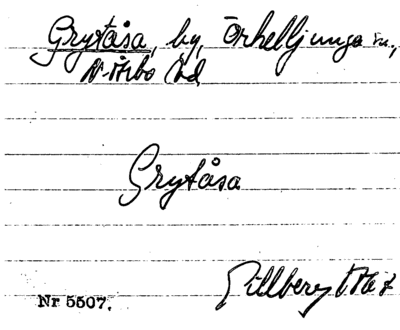 Grytåsa, by, Örkelljunga sn.,
N. Åsbo hd
Grytåsa
Nr 5507.